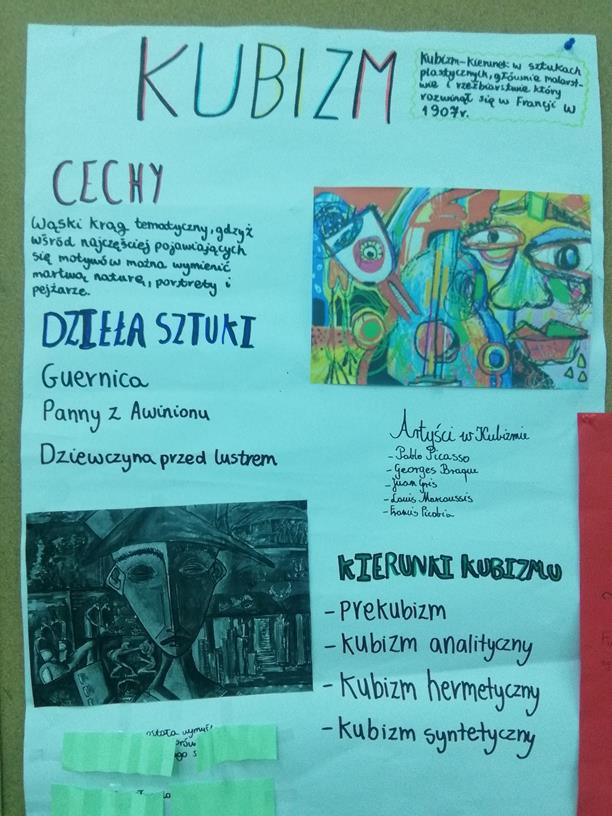 KUBIZM
Kubizm-kierunek w sztukach
plastycznych, głównie malars-
twie i rzeźbiarstwie który
rozwinął się w Francji w
1907r.
CECHY
Wąski krąg tematyczny, gdzyż
wśród najczęściej pojawiających
się motywów można wymienić
martwą naturę, portrety i
pejzarze.
DZIEŁA SZTUKI
Guernica
Panny z Awinionu
Dziewczyna przed lustrem
Artyści w Kubizmie
- Pablo Picasso
- Georges Braque
- Juan Gris
- Louis Marcoussis
- Francis Picabia
KIERUNKI KUBIZMU
- prekubizm
- kubizm analityczny
- kubizm hermetyczny
- kubizm syntetyczny